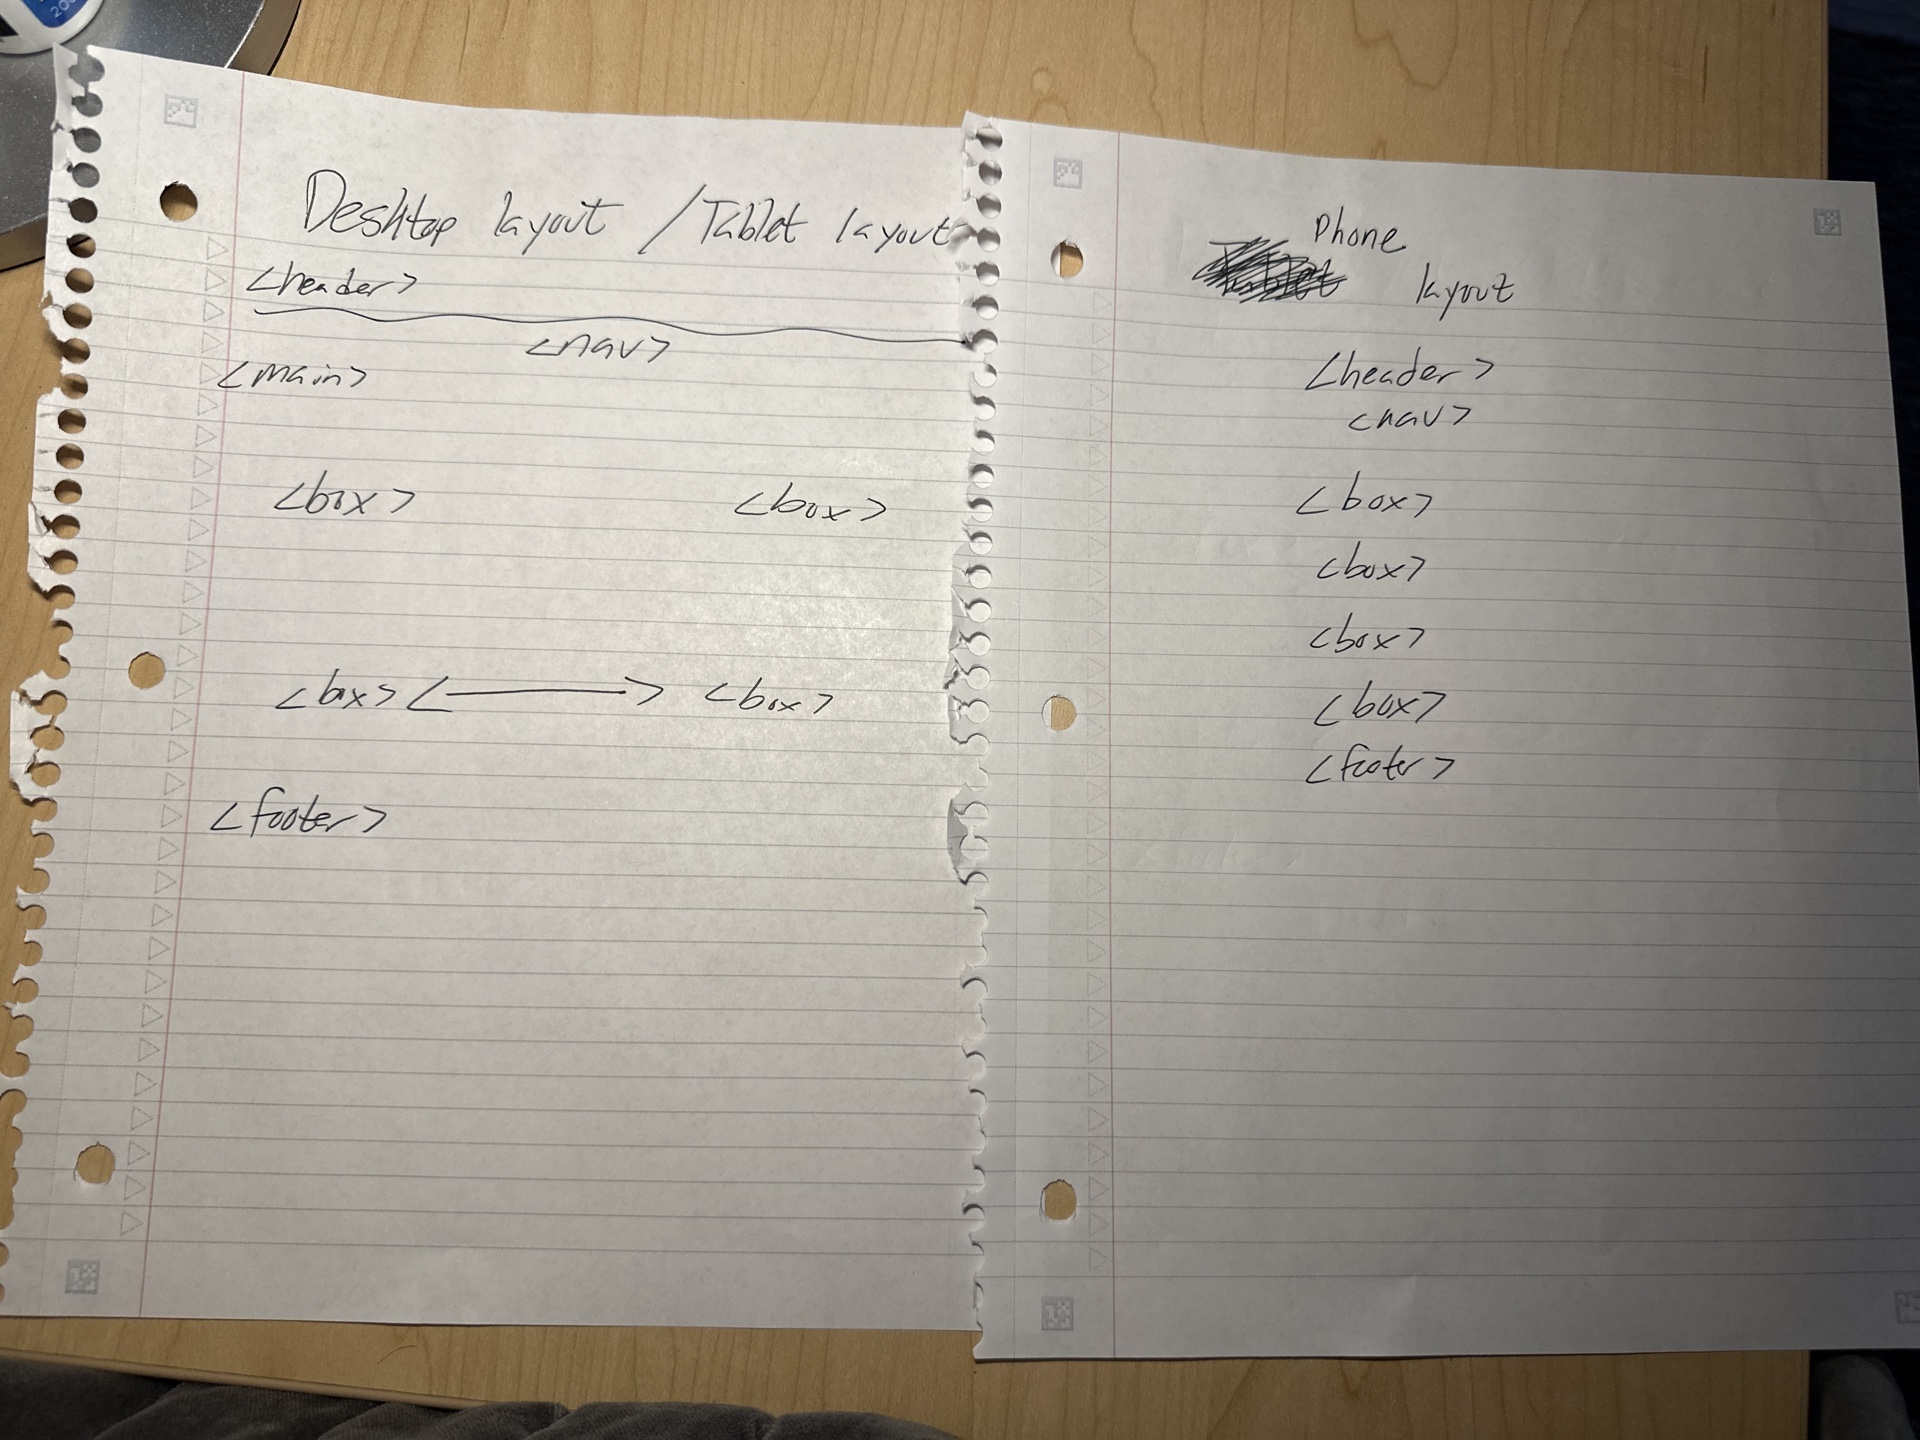 Desktop layout / Tablet layout
<header>
<nav>
<main>
<box> <box>
<box> <⟶> <box>
<footer>
Phone
layout
<header>
<nav>
<box>
<box>
<box>
<box>
<footer>